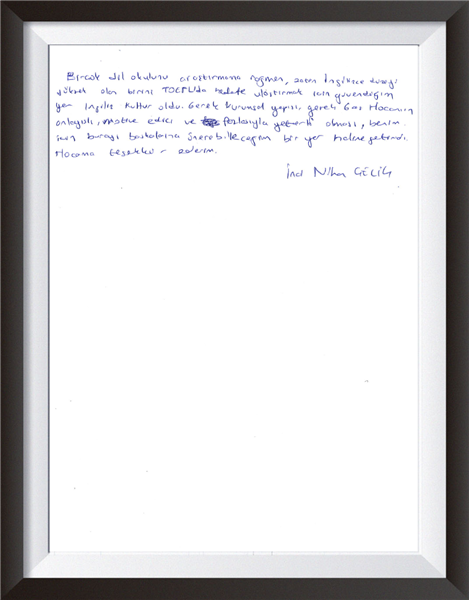 Birçok dil okulunu araştırmama rağmen, zaten İngilizce düzeyi
yüksek olan birini TOEFL'da hedefe ulaştırmak için güvendiğim
yer İngiliz Kültür oldu. Gerek kurumsal yapısı, gerek Hocanın
anlayışlı, motive edici ve fazlasıyla yeterli olması, benim
için burayı başkalarına önerebileceğim bir yer haline getirdi.
Hocama teşekkür ederim.
İnci Nihan